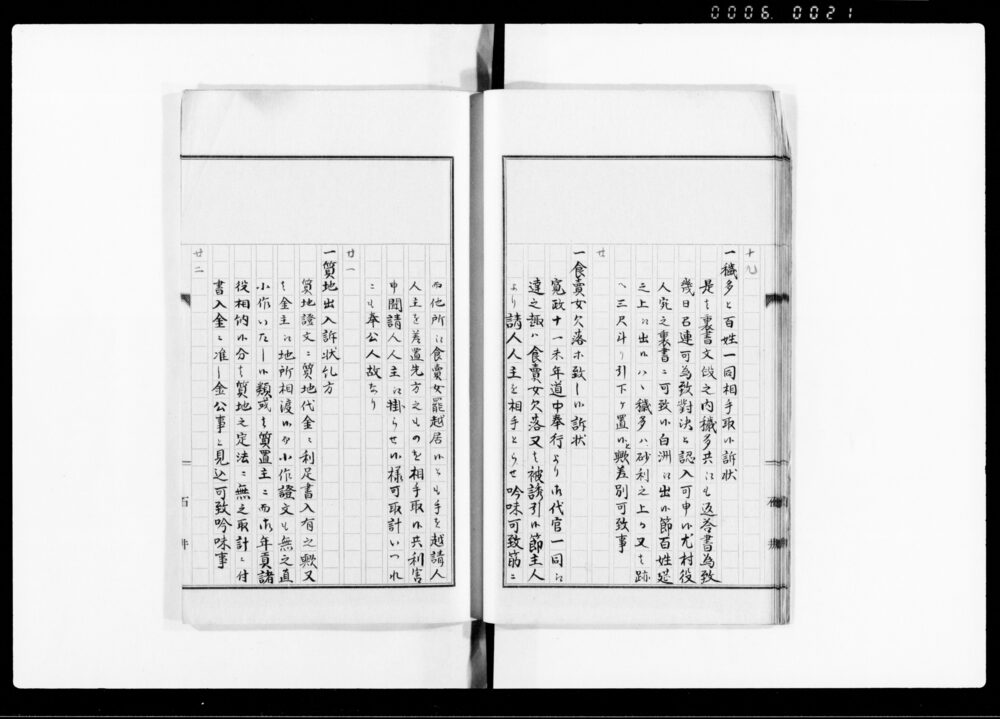 0006 0021
十九
一穢多と百姓一同相手取候訴状
是ハ裏書文段之内穢多共江も返答書為致
幾日召連可為致對決と認入可申候尤村役
人宛之裏書ニ可致候白洲江出候節百姓是
之上江出候ハヽ穢多ハ砂利之上か又ハ跡
へ三尺斗り引下ケ置候と歟差別可致事
廿
一食賣女欠落ホ致し候訴状
寛政十一未年道中奉行より御代官一同江
達之趣ハ食賣女欠落又ハ被誘引候節主人
より請人人主を相手とらせ吟味可致筋ニ
而他所江食賣女罷越居候とも手を越請人
人主を差置先方之ものを相手取候共利害
申聞請人人主江掛らせ候様可取計いつれ
にも奉公人故なり
廿一
一質地出入訴状糺方
質地證文ニ質地代金ニ利足書入有之歟又
ハ金主江地所相渡候か小作證文も無之直
小作いたし候類或ハ質置主ニ而御年貢諸
役相納候分ハ質地之定法ニ無之取計ニ付
書入金ニ准し金公事と見込可致吟味事
廿二